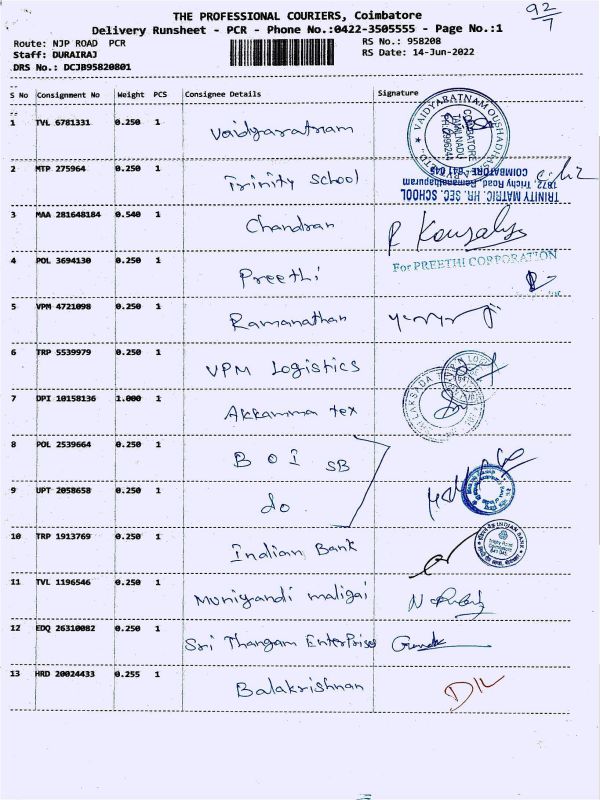 92/7
THE PROFESSIONAL COURIERS, Coimbatore
Delivery Runsheet - PCR - Phone No.:0422-3505555 - Page No.:1
Route: NJP ROAD PCR
RS No.: 958208
Staff: DURAIRAJ
RS Date: 14-Jun-2022
DRS No.: DCJB95820801
S No Consignment No Weight PCS Consignee Details Signature
1 TVL 6781331 0.250 1 Vaidyaratnam
VAIDYARATNAM OUSHADHASALA
COIMBATORE
TAMILNADU
2 MTP 275964 0.250 1 Trinity School
TRINITY MATRIC. HR. SEC. SCHOOL
1872, Trichy Road, Ramanathapuram
COIMBATORE - 641 045
3 MAA 281648184 0.540 1 Chandran R Kousalya
4 POL 3694130 0.250 1 Preethi
For PREETHI CORPORATION
5 VPM 4721098 0.250 1 Ramanathan
6 TRP 5539979 0.250 1 VPM Logistics
7 DPI 10158136 1.000 1 Akkamma tex
8 POL 2539664 0.250 1 BOI SB
9 UPT 2058658 0.250 1 do
10 TRP 1913769 0.250 1 Indian Bank
INDIAN BANK
11 TVL 1196546 0.250 1 Muniyandi maligai
12 EDQ 26310082 0.250 1 Sri Thangam Enterprises
13 HRD 20024433 0.255 1 Balakrishnan D/L